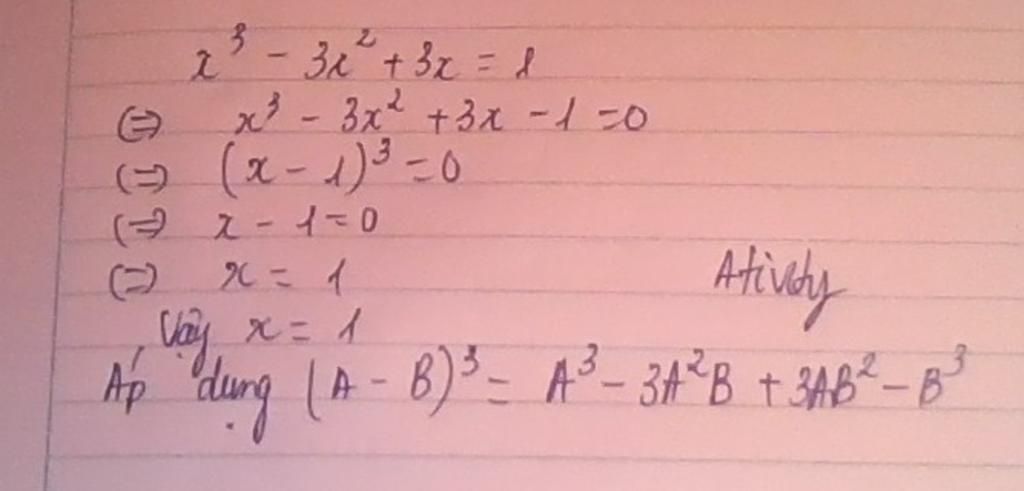 x³ - 3x² + 3x = 1
(=) x³ - 3x² + 3x - 1 = 0
(=) (x - 1)³ = 0
(=) x - 1 = 0
(=) x = 1
Ativdy
Vậy x = 1
Áp dụng (A - B)³ = A³ - 3A²B + 3AB² - B³